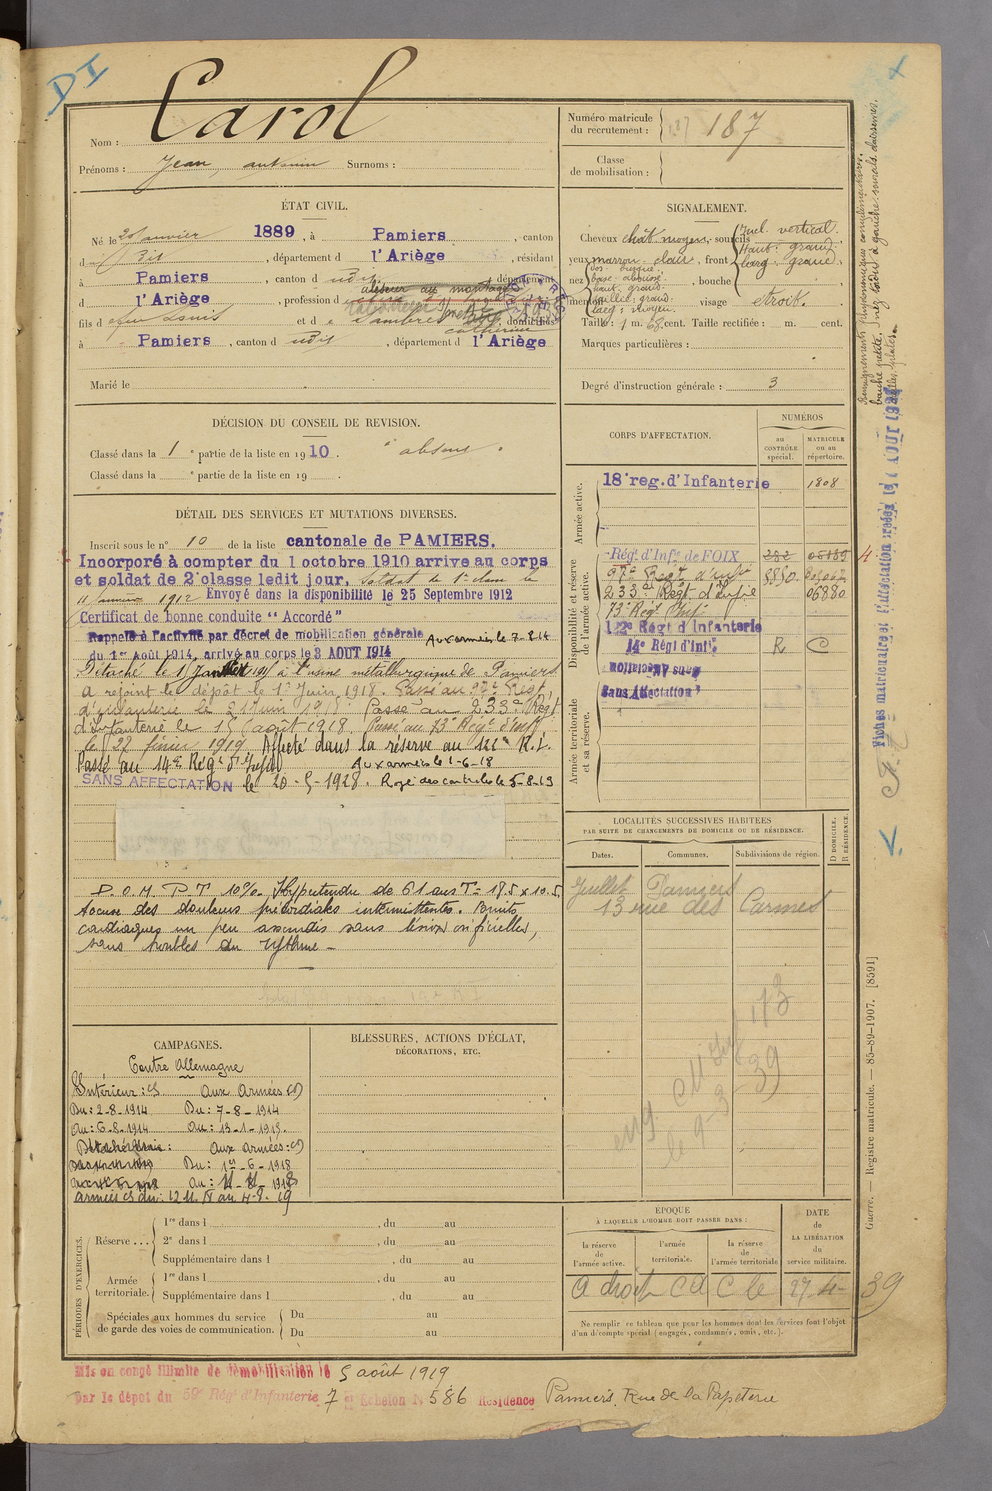 DI
Carol
Nom :
Prénoms : Jean, antonin Surnoms :
Numéro matricule
du recrutement : 187
Classe
de mobilisation :
ÉTAT CIVIL.
Né le janvier 1889, à Pamiers, canton
d dit, département d l'Ariège, résidant
à Pamiers, canton d udit, département
d l'Ariège, profession d
aléseur au montage
fils d efeu Louis et d e domiciliés
catherine
à Pamiers, canton d udit, département d l'Ariège
Marié le
SIGNALEMENT.
Cheveux chât. moyen, sourcils
yeux marron clair, front
Incl. vertical.
Haut. grand
larg. grand
nez
dos busqué
base abaissé
haut. grand
saillie: grand
larg: moyen
, bouche
menton visage étroit.
Taille: 1 m. 68 cent. Taille rectifiée : m. cent.
Marques particulières :
Degré d'instruction générale : 3
Renseignements physionomiques complémentaires:
bouche petite, nez tordu à gauche, sourcils clairsemés.
DÉCISION DU CONSEIL DE REVISION.
Classé dans la 1e partie de la liste en 1910. "absent"
Classé dans la e partie de la liste en 19 .
CORPS D'AFFECTATION.
NUMÉROS
au
CONTRÔLE
spécial.
MATRICULE
ou au
répertoire.
Armée active.
18e reg. d'Infanterie 1808
Disponibilité et réserve
de l'armée active.
Régt d'Infie de FOIX 282 05189
97e Régt d'Infie 8880
233e Régt d'Infie 06880
73e Régt Infie
122e Régt d'Infanterie
14e Régt d'Infie R C
Sans Affectation
Sans Affectation
Armée territoriale
et sa réserve.
DÉTAIL DES SERVICES ET MUTATIONS DIVERSES.
Inscrit sous le n° 10 de la liste cantonale de PAMIERS.
Incorporé à compter du 1 octobre 1910 arrive au corps
et soldat de 2e classe ledit jour, soldat de 1e classe le
11 janvier 1912 Envoyé dans la disponibilité le 25 Septembre 1912
Certificat de bonne conduite "Accordé"
Rappelé à l'activité par décret de mobilisation générale Aux armées le 7-8-14
du 1er Août 1914, arrivé au corps le 3 AOUT 1914
Détaché le à l'usine métallurgique de Pamiers
a rejoint le dépôt le 1er Juin 1918. Passé au 97e Régt
d'infanterie le Juin 1918 Passé au 233e Régt
d'Infanterie le 15 août 1918. Passé au 73e Régt d'Infie
le 22 février 1919. Affecté dans la réserve au 122e R.I.
Passé au 14e Régt d'Infie Aux armées le 1-6-18
SANS AFFECTATION le 20-5-1928. Rayé des contrôles le 5-8-19
P.O.M. P T 10%. Hypertendu de 61 ans Tn 17.5 x 10.5
Accuse des douleurs précordiales intermittentes. Bruits
cardiaques un peu assourdis sans lésion orificielles,
sans troubles du rythme –
LOCALITÉS SUCCESSIVES HABITÉES
PAR SUITE DE CHANGEMENTS DE DOMICILE OU DE RÉSIDENCE.
D DOMICILE.
R RÉSIDENCE.
Dates.
Communes.
Subdivisions de région.
Juillet Pamiers
13 rue des Carmes
le 9-3 39
CAMPAGNES.
Contre Allemagne
Intérieur: CS Aux Armées CD
Du: 2-8-1914 Du: 7-8-1914
Au: 6-8-1914 Au: 13-1-1915.
Aux armées: CD
Du: 1er-6-1918
Au: 11-11-1918
armées CS du: 12.11.18 au 4-8-19
BLESSURES, ACTIONS D'ÉCLAT,
DÉCORATIONS, ETC.
PÉRIODES D'EXERCICES.
Réserve ...
1re dans l , du au
2e dans l , du au
Supplémentaire dans l , du au
Armée
territoriale.
1re dans l , du au
Supplémentaire dans l , du au
Spéciales aux hommes du service
de garde des voies de communication.
Du au
Du au
ÉPOQUE
À LAQUELLE L'HOMME DOIT PASSER DANS :
la réserve
de
l'armée active.
l'armée
territoriale.
la réserve
de
l'armée territoriale
DATE
de
LA LIBÉRATION
du
service militaire.
A droit CA C le 27-4-39
Ne remplir ce tableau que pour les hommes dont les services font l'objet
d'un décompte spécial (engagés, condamnés, omis, etc.).
Guerre. — Registre matricule. — 85-89-1907. [8591]
Mis en congé illimité de démobilisation le 5 août 1919
par le dépôt du 59e Régt d'Infanterie 7 e Echelon N° 586 Résidence Pamiers. Rue de la Papeterie